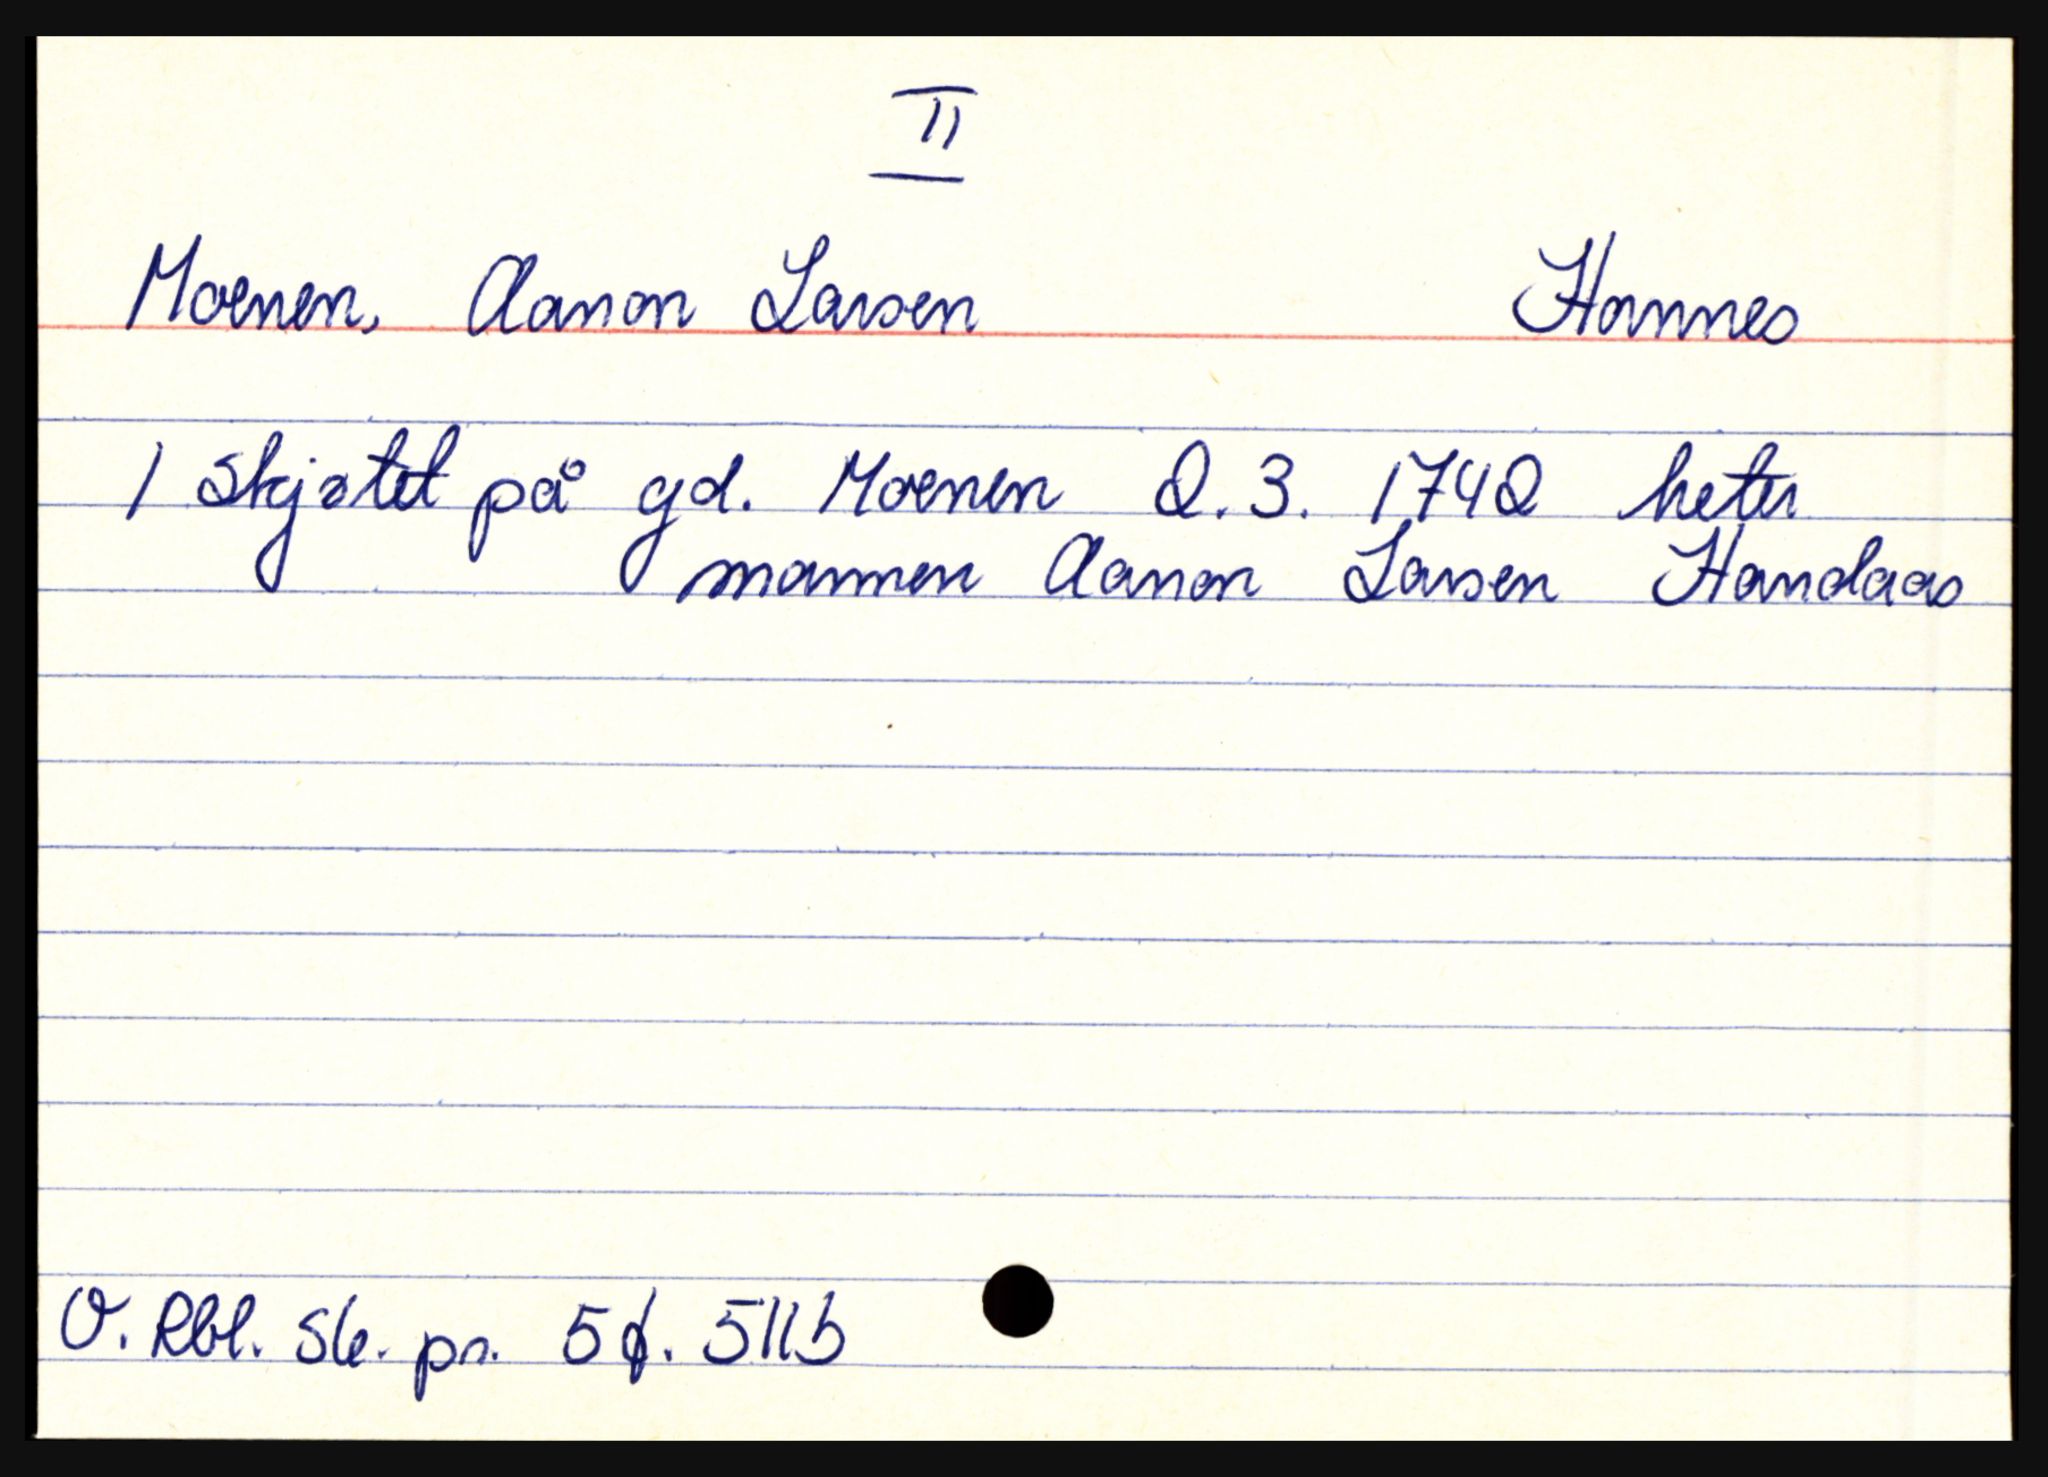 II
Moenen, Aanon Larsen Hannes
I skjøtet på gd. Moenen 2.3. 1742 heter
mannen Aanon Larsen Handaas
V. Rbl. sk. pr. 5 f. 511b